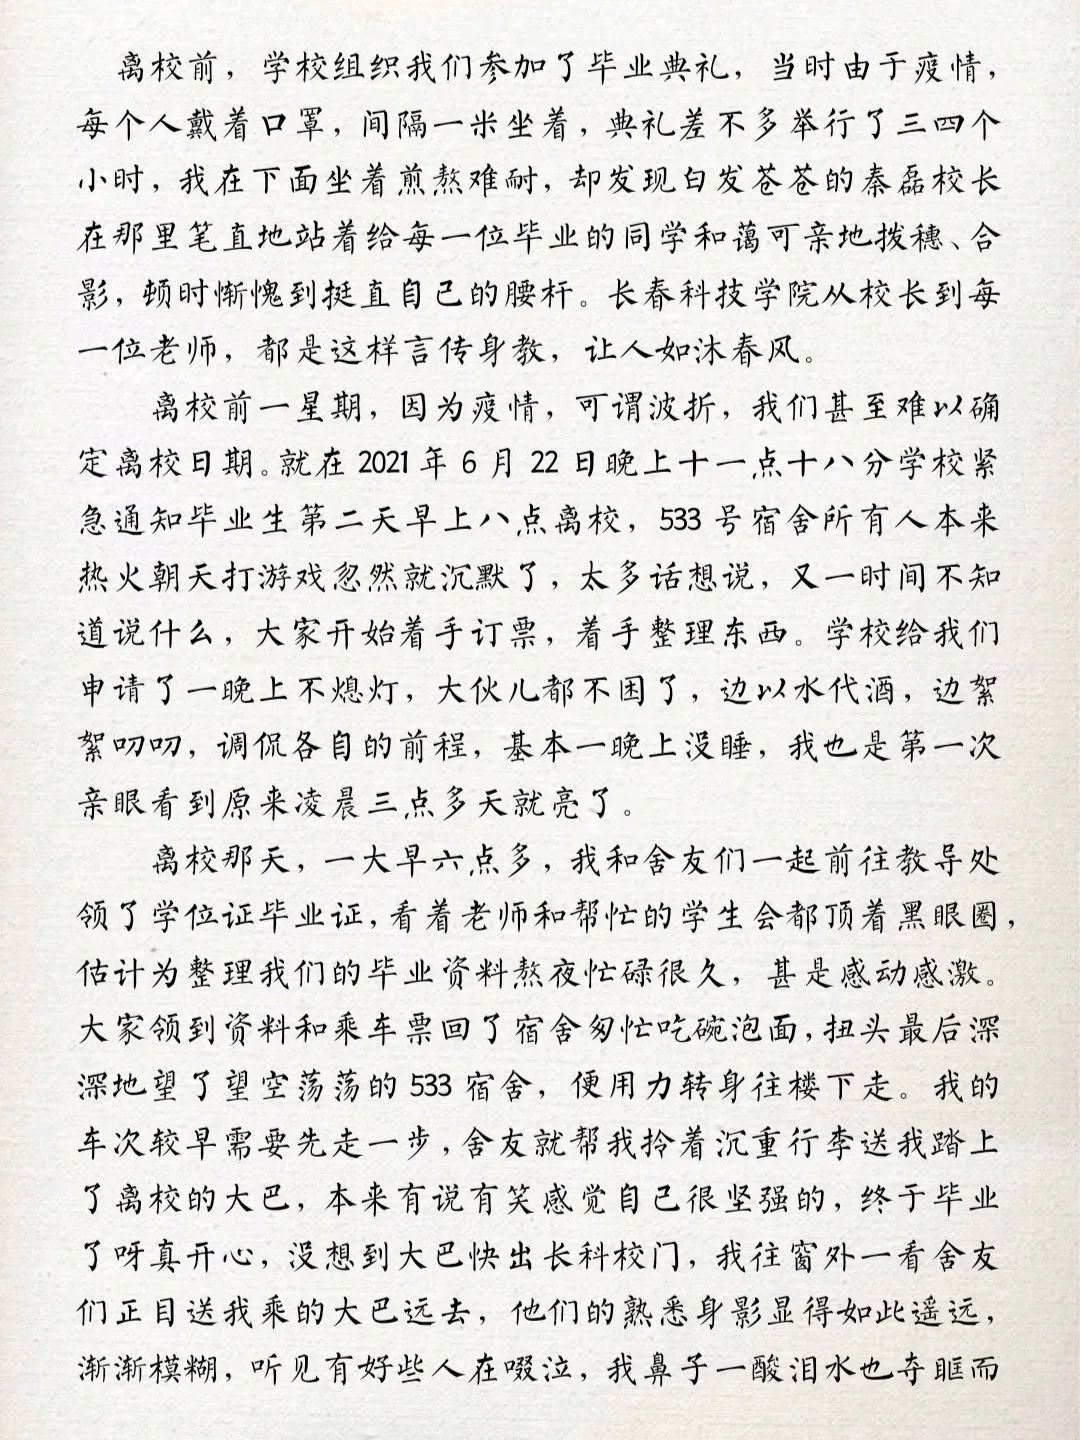 离校前，学校组织我们参加了毕业典礼，当时由于疫情，
每个人戴着口罩，间隔一米坐着，典礼差不多举行了三四个
小时，我在下面坐着煎熬难耐，却发现白发苍苍的秦磊校长
在那里笔直地站着给每一位毕业的同学和蔼可亲地拨穗、合
影，顿时惭愧到挺直自己的腰杆。长春科技学院从校长到每
一位老师，都是这样言传身教，让人如沐春风。
离校前一星期，因为疫情，可谓波折，我们甚至难以确
定离校日期。就在 2021 年 6 月 22 日晚上十一点十八分学校紧
急通知毕业生第二天早上八点离校，533 号宿舍所有人本来
热火朝天打游戏忽然就沉默了，太多话想说，又一时间不知
道说什么，大家开始着手订票，着手整理东西。学校给我们
申请了一晚上不熄灯，大伙儿都不困了，边以水代酒，边絮
絮叨叨，调侃各自的前程，基本一晚上没睡，我也是第一次
亲眼看到原来凌晨三点多天就亮了。
离校那天，一大早六点多，我和舍友们一起前往教导处
领了学位证毕业证，看着老师和帮忙的学生会都顶着黑眼圈，
估计为整理我们的毕业资料熬夜忙碌很久，甚是感动感激。
大家领到资料和乘车票回了宿舍匆忙吃碗泡面，扭头最后深
深地望了望空荡荡的 533 宿舍，便用力转身往楼下走。我的
车次较早需要先走一步，舍友就帮我拎着沉重行李送我踏上
了离校的大巴，本来有说有笑感觉自己很坚强的，终于毕业
了呀真开心，没想到大巴快出长科校门，我往窗外一看舍友
们正目送我乘的大巴远去，他们的熟悉身影显得如此遥远，
渐渐模糊，听见有好些人在啜泣，我鼻子一酸泪水也夺眶而